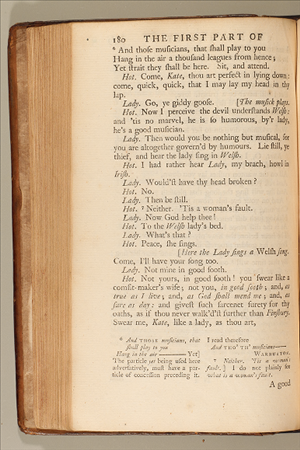 180 THE FIRST PART OF
⁶ And those musicians, that shall play to you
Hang in the air a thousand leagues from hence;
Yet strait they shall be here. Sit, and attend.
Hot. Come, Kate, thou art perfect in lying down:
come, quick, quick, that I may lay my head in thy
lap.
Lady. Go, ye giddy goose. [The musick plays.
Hot. Now I perceive the devil understands Welsh;
and 'tis no marvel, he is so humorous, by'r lady,
he's a good musician.
Lady. Then would you be nothing but musical, for
you are altogether govern'd by humours. Lie still, ye
thief, and hear the lady sing in Welsh.
Hot. I had rather hear Lady, my brach, howl in
Irish.
Lady. Would'st have thy head broken?
Hot. No.
Lady. Then be still.
Hot. ⁷ Neither. 'Tis a woman's fault.
Lady. Now God help thee!
Hot. To the Welsh lady's bed.
Lady. What's that?
Hot. Peace, she sings.
[Here the Lady sings a Welsh song.
Come, I'll have your song too.
Lady. Not mine in good sooth.
Hot. Not yours, in good sooth! you swear like a
comfit-maker's wife; not you, in good sooth; and, as
true as I live; and, as God shall mend me; and, as
sure as day: and givest such sarcenet surety for thy
oaths, as if thou never walk'd'st further than Finsbury.
Swear me, Kate, like a lady, as thou art,
⁶ And THOSE musicians, that
shall play to you
Hang in the air —— Yet]
The particle yet being used here
adversatively, must have a par-
ticle of concession preceding it.
I read therefore
And THO' TH' musicians——
WARBURTON.
⁷ Neither. 'Tis a woman's
fault.] I do not plainly see
what is a woman's fault.
A good